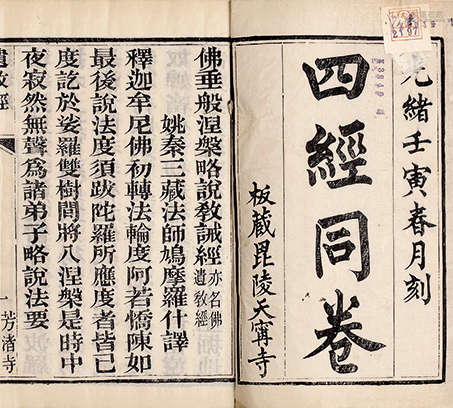 光緒壬寅春月刻
四經同卷
板藏毘陵天寧寺
佛垂般涅槃略說教誡經亦名佛遺教經
姚秦三藏法師鳩摩羅什譯
釋迦牟尼佛初轉法輪度阿若憍陳如
最後說法度須跋陀羅所應度者皆已
度訖於娑羅雙樹間將入涅槃是時中
夜寂然無聲爲諸弟子略說法要
遺敎經
一
芳渚寺